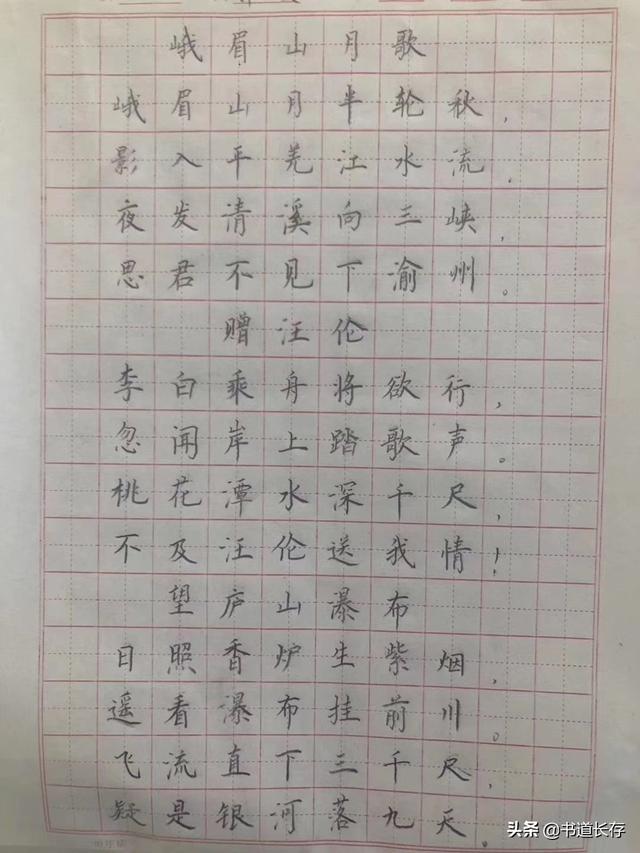 峨眉山月歌
峨眉山月半轮秋，
影入平羌江水流．
夜发清溪向三峡，
思君不见下渝州。
赠汪伦
李白乘舟将欲行，
忽闻岸上踏歌声。
桃花潭水深千尺，
不及汪伦送我情！
望庐山瀑布
日照香炉生紫烟，
遥看瀑布挂前川。
飞流直下三千尺，
疑是银河落九天。
头条@书道长存